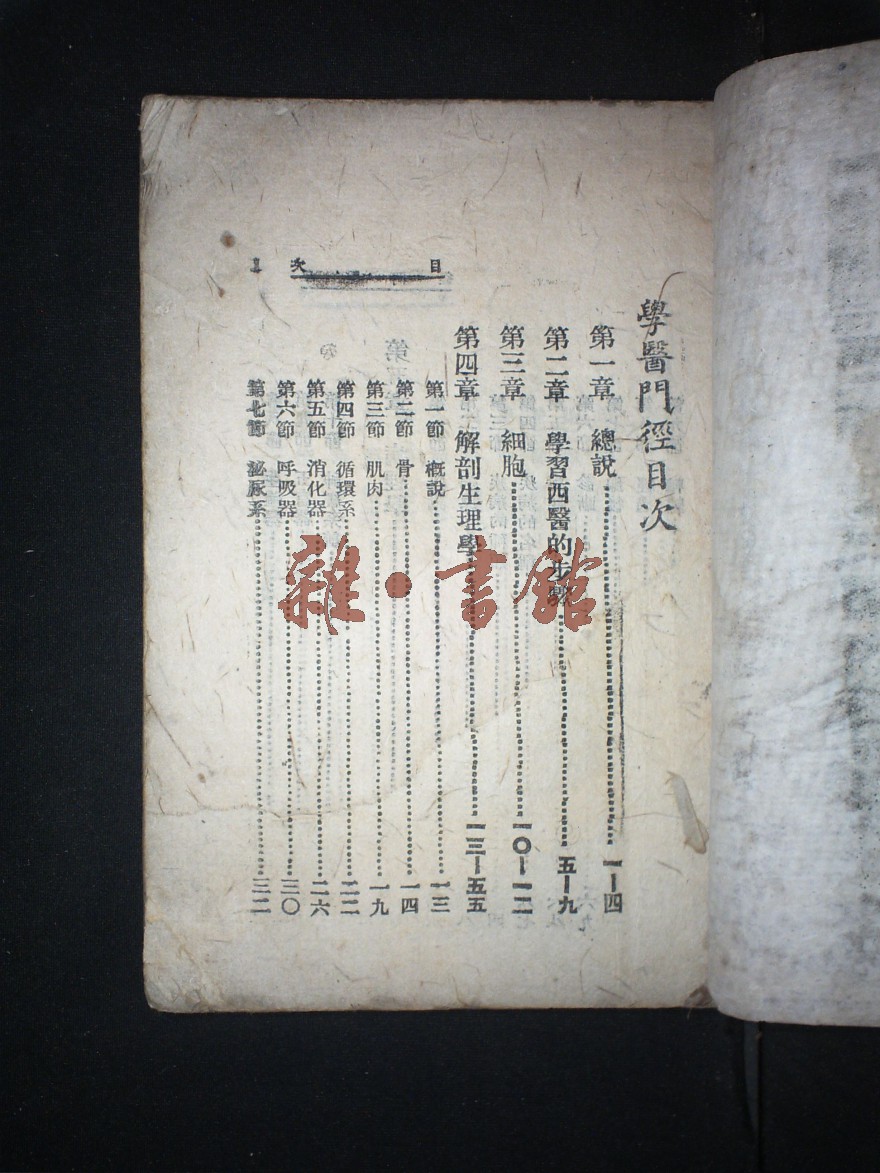 學醫門徑目次
目次 1
第一章 總說 一—四
第二章 學習西醫的步驟 五—九
第三章 細胞 一〇—一二
第四章 解剖生理學 一三—五五
第一節 概說 一三
第二節 骨 一四
第三節 肌肉 一九
第四節 循環系 二二
第五節 消化器 二六
第六節 呼吸器 三〇
第七節 泌尿系 三二
雜·書館